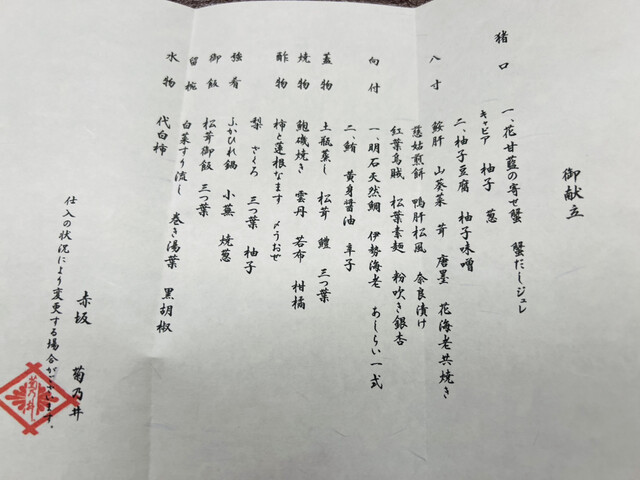 御献立
猪口 一、花甘藍の寄せ蟹 蟹だしジュレ
キャビア 柚子 葱
二、柚子豆腐 柚子味噌
八寸 鮟肝 山葵菜 茸 唐墨 花海老共焼き
慈姑煎餅 鴨肝松風 奈良漬け
紅葉烏賊 松葉素麺 粉吹き銀杏
向付 一、明石天然鯛 伊勢海老 あしらい一式
二、鮪 黄身醤油 辛子
蓋物 土瓶蒸し 松茸 鱧 三つ葉
焼物 鮑磯焼き 雲丹 若布 柑橘
酢物 柿と蓮根なます 〆うおぜ
梨 ざくろ 三つ葉 柚子
強肴 ふかひれ鍋 小蕪 焼葱
御飯 松茸御飯 三つ葉
留椀 白菜すり流し 巻き湯葉 黒胡椒
水物 代白柿
赤坂 菊乃井
仕入の状況により変更する場合がございます。
菊乃井